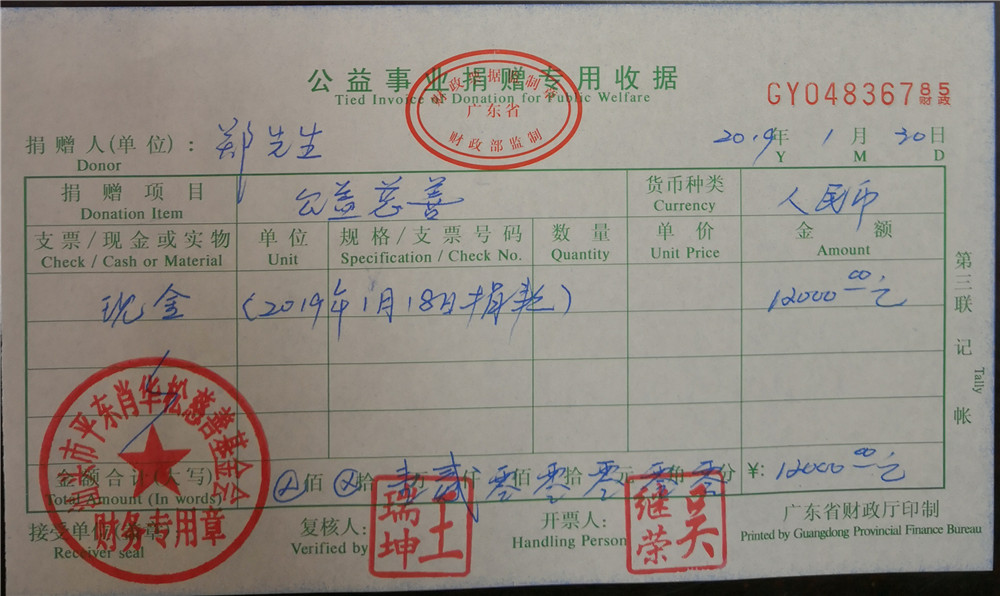 公益事业捐赠专用收据
Tied Invoice of Donation for Public Welfare
财政部监制
广东省
GY04836785
财政
捐赠人(单位)：郑先生
Donor
2019年1月30日
Y M D
捐赠项目 公益慈善 货币种类 人民币
Donation Item Currency
支票/现金或实物 单位 规格/支票号码 数量 单价 金额
Check / Cash or Material Unit Specification / Check No. Quantity Unit Price Amount
现金 (2019年1月18日捐款) 12000.00元
第三联 记帐
Tally
市平东肖华松慈善基金会
财务专用章
金额合计(大写) ⊗佰⊗拾壹万贰仟零佰零拾零元零角零分 ¥：12000.00元
Total Amount (In words)
接受单位 盖章：
Receiver seal
复核人：
Verified by
王瑞坤
开票人：
Handling Person
吴继荣
广东省财政厅印制
Printed by Guangdong Provincial Finance Bureau